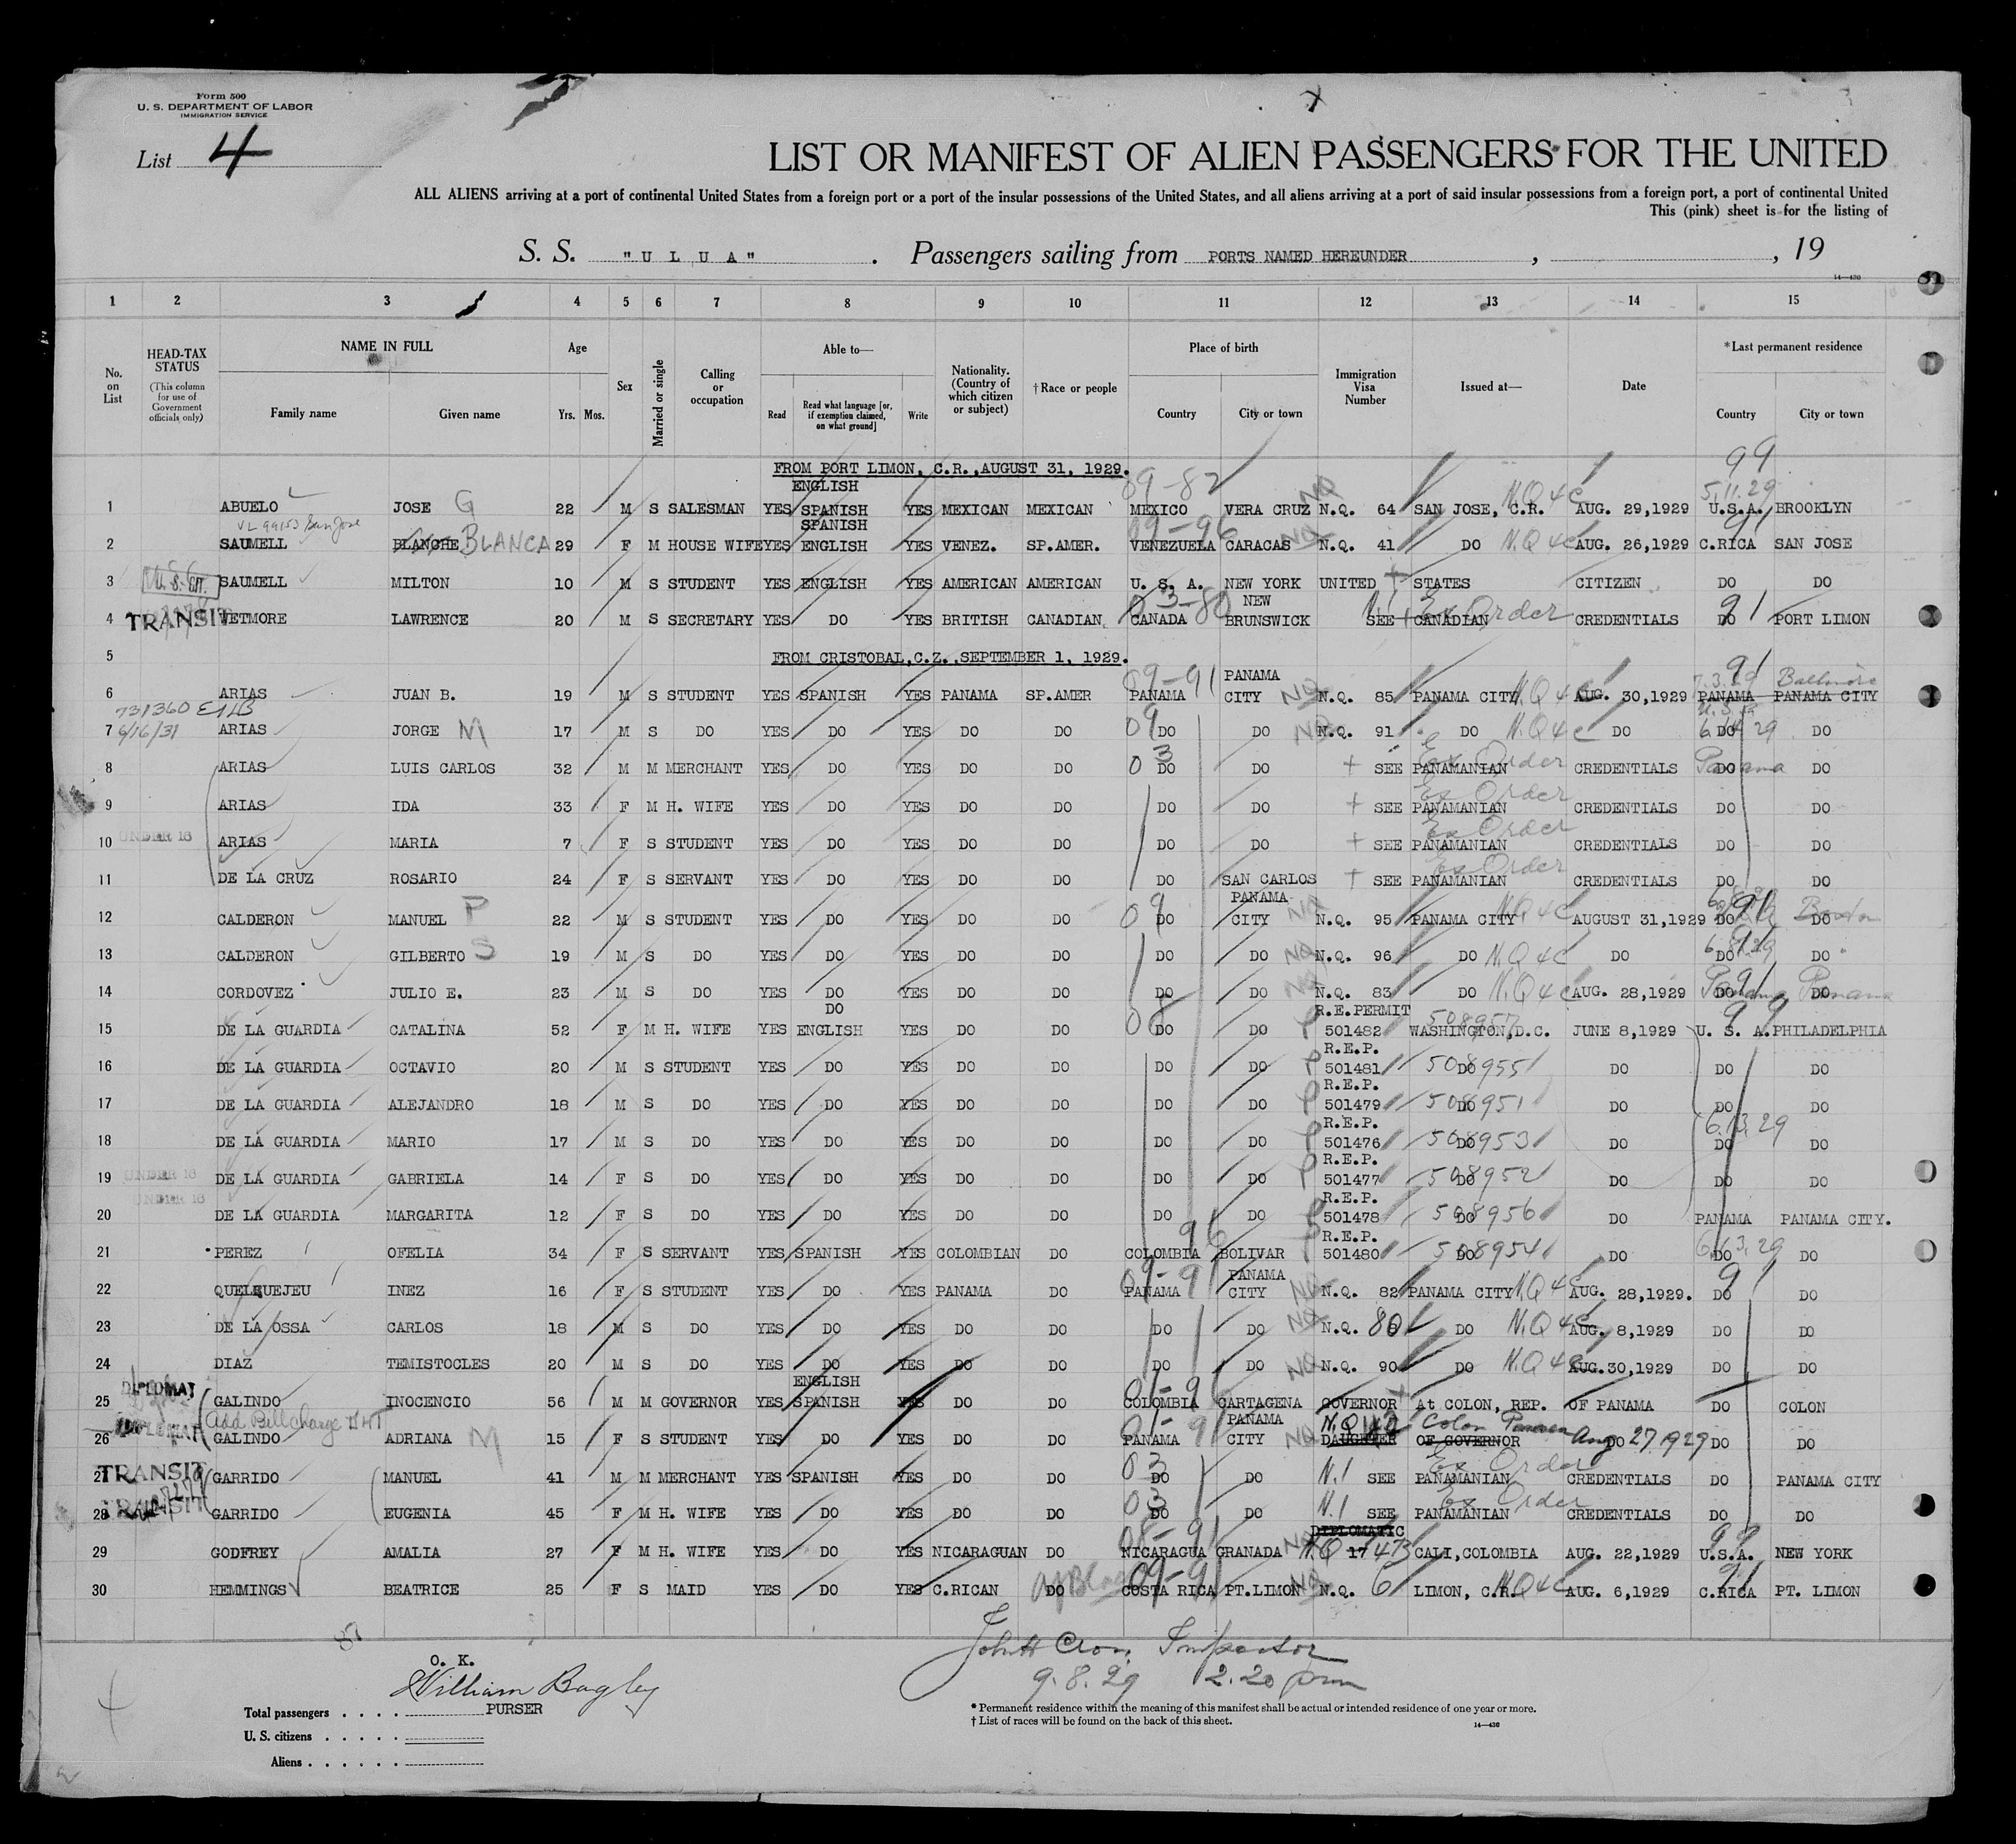 Form 500
U. S. DEPARTMENT OF LABOR
IMMIGRATION SERVICE
List 4
LIST OR MANIFEST OF ALIEN PASSENGERS FOR THE UNITED
ALL ALIENS arriving at a port of continental United States from a foreign port or a port of the insular possessions of the United States, and all aliens arriving at a port of said insular possessions from a foreign port, a port of continental United
This (pink) sheet is for the listing of
S. S. "U L U A" . Passengers sailing from PORTS NAMED HEREUNDER , , 19
14—430
1 2 3 4 5 6 7 8 9 10 11 12 13 14 15
No. on List
HEAD-TAX STATUS (This column for use of Government officials only)
NAME IN FULL Family name Given name
Age Yrs. Mos.
Sex
Married or single
Calling or occupation
Able to— Read Read what language [or, if exemption claimed, on what ground] Write
Nationality. (Country of which citizen or subject)
†Race or people
Place of birth Country City or town
Immigration Visa Number
Issued at—
Date
*Last permanent residence Country City or town
FROM PORT LIMON, C.R., AUGUST 31, 1929.
99
09-82 NQ N.Q 4c 5.11.29
1 ABUELO JOSE G 22 M S SALESMAN YES ENGLISH SPANISH YES MEXICAN MEXICAN MEXICO VERA CRUZ N.Q. 64 SAN JOSE, C.R. AUG. 29,1929 U.S.A. BROOKLYN
09-96 NQ N.Q 4c 91
2 SAUMELL BLANCHE BLANCA 29 F M HOUSE WIFE YES SPANISH ENGLISH YES VENEZ. SP.AMER. VENEZUELA CARACAS N.Q. 41 DO AUG. 26,1929 C.RICA SAN JOSE
3 U.S. CIT. SAUMELL MILTON 10 M S STUDENT YES ENGLISH YES AMERICAN AMERICAN U. S. A. NEW YORK UNITED STATES CITIZEN DO DO
03-80 Ex Order 91
4 TRANSIT WETMORE LAWRENCE 20 M S SECRETARY YES DO YES BRITISH CANADIAN CANADA NEW BRUNSWICK SEE CANADIAN CREDENTIALS DO PORT LIMON
5 FROM CRISTOBAL,C.Z.,SEPTEMBER 1, 1929.
09-91 NQ N.Q 4c 91 Baltimore
6 ARIAS JUAN B. 19 M S STUDENT YES SPANISH YES PANAMA SP.AMER PANAMA PANAMA CITY N.Q. 85 PANAMA CITY AUG. 30,1929 PANAMA PANAMA CITY
731360
6/16/31
7 ARIAS JORGE M 17 M S DO YES DO YES DO DO 09 DO DO NQ N.Q. 91 DO N.Q 4c DO DO DO
8 ARIAS LUIS CARLOS 32 M M MERCHANT YES DO YES DO DO 03 DO DO SEE PANAMANIAN Ex Order CREDENTIALS DO Panama DO
9 ARIAS IDA 33 F M H. WIFE YES DO YES DO DO DO DO SEE PANAMANIAN Ex Order CREDENTIALS DO DO
10 UNDER 16 ARIAS MARIA 7 F S STUDENT YES DO YES DO DO DO DO SEE PANAMANIAN Ex Order CREDENTIALS DO DO
11 DE LA CRUZ ROSARIO 24 F S SERVANT YES DO YES DO DO DO SAN CARLOS SEE PANAMANIAN Ex Order CREDENTIALS DO DO
12 CALDERON MANUEL P 22 M S STUDENT YES DO YES DO DO 09 DO PANAMA CITY NQ N.Q. 95 PANAMA CITY N.Q 4c AUGUST 31,1929 DO 91 Boston DO
13 CALDERON GILBERTO S 19 M S DO YES DO YES DO DO DO DO NQ N.Q. 96 DO N.Q 4c DO DO DO
14 CORDOVEZ JULIO E. 23 M S DO YES DO YES DO DO DO DO NQ N.Q. 83 DO N.Q 4c AUG. 28,1929 DO Panama 91 DO Panama
15 DE LA GUARDIA CATALINA 52 F M H. WIFE YES DO ENGLISH YES DO DO 08 DO DO R.E.PERMIT 501482 508957 WASHINGTON,D.C. JUNE 8,1929 U. S. A. 99 PHILADELPHIA
16 DE LA GUARDIA OCTAVIO 20 M S STUDENT YES DO YES DO DO DO DO R.E.P. 501481 DO 508955 DO DO DO
17 DE LA GUARDIA ALEJANDRO 18 M S DO YES DO YES DO DO DO DO R.E.P. 501479 DO 508951 DO DO DO
18 DE LA GUARDIA MARIO 17 M S DO YES DO YES DO DO DO DO R.E.P. 501476 DO 508953 DO DO 6.13.29 DO
19 UNDER 16 DE LA GUARDIA GABRIELA 14 F S DO YES DO YES DO DO DO DO R.E.P. 501477 DO 508952 DO DO DO
20 UNDER 16 DE LA GUARDIA MARGARITA 12 F S DO YES DO YES DO DO DO DO R.E.P. 501478 DO 508956 DO PANAMA PANAMA CITY.
21 PEREZ OFELIA 34 F S SERVANT YES SPANISH YES COLOMBIAN DO COLOMBIA 96 BOLIVAR R.E.P. 501480 DO 508954 DO DO 6.13.29 DO
22 QUELQUEJEU INEZ 16 F S STUDENT YES DO YES PANAMA DO 09-91 PANAMA PANAMA CITY NQ N.Q. 82 PANAMA CITY N.Q 4c AUG. 28,1929. DO 91 DO
23 DE LA OSSA CARLOS 18 M S DO YES DO YES DO DO DO DO NQ N.Q. 80 DO N.Q 4c AUG. 8,1929 DO DO
24 DIAZ TEMISTOCLES 20 M S DO YES DO YES DO DO DO DO NQ N.Q. 90 DO N.Q 4c AUG.30,1929 DO DO
25 DIPLOMAT GALINDO INOCENCIO 56 M M GOVERNOR YES ENGLISH SPANISH YES DO DO 01-96 COLOMBIA CARTAGENA GOVERNOR At COLON, REP. OF PANAMA DO COLON
Add Bill charge
26 DIPLOMAT GALINDO ADRIANA M 15 F S STUDENT YES DO YES DO DO 01-91 PANAMA PANAMA CITY NQ DAUGHTER OF GOVERNOR Colon Panama DO Aug 27 1929 DO DO
27 TRANSIT GARRIDO MANUEL 41 M M MERCHANT YES SPANISH YES DO DO 03 DO DO N.1 SEE PANAMANIAN Ex Order CREDENTIALS DO PANAMA CITY
28 TRANSIT GARRIDO EUGENIA 45 F M H. WIFE YES DO YES DO DO 03 DO DO N.1 SEE PANAMANIAN Ex Order CREDENTIALS DO DO
29 GODFREY AMALIA 27 F M H. WIFE YES DO YES NICARAGUAN DO 08-91 NICARAGUA GRANADA DIPLOMATIC N.Q 17 473 CALI,COLOMBIA AUG. 22,1929 U.S.A. 99 NEW YORK
30 HEMMINGS BEATRICE 25 F S MAID YES DO YES C.RICAN DO 09-91 COSTA RICA PT.LIMON NQ N.Q. 6 LIMON, C.R. N.Q 4c AUG. 6,1929 C.RICA 91 PT. LIMON
O. K.
William Bagley
PURSER
Inspector
9.8.29 2.20 pm
Total passengers . . . .
U. S. citizens . . . . .
Aliens . . . . . .
* Permanent residence within the meaning of this manifest shall be actual or intended residence of one year or more.
† List of races will be found on the back of this sheet.
14—430